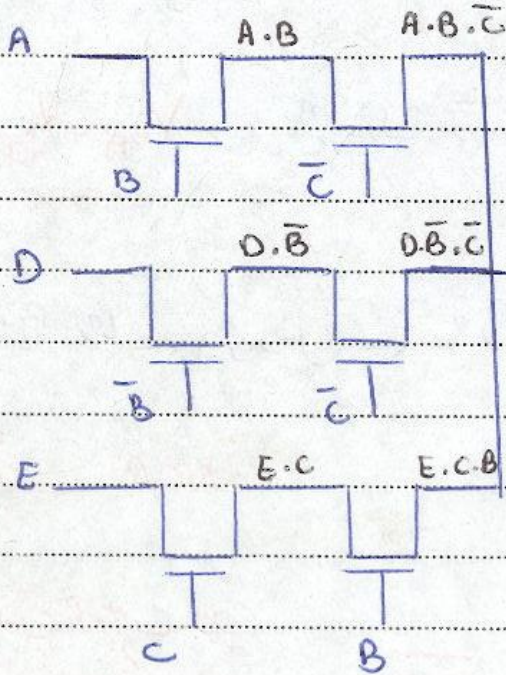 A A·B A·B·C̅
B C̅
D D·B̅ D·B̅·C̅
B̅ C̅
E E·C E·C·B
C B